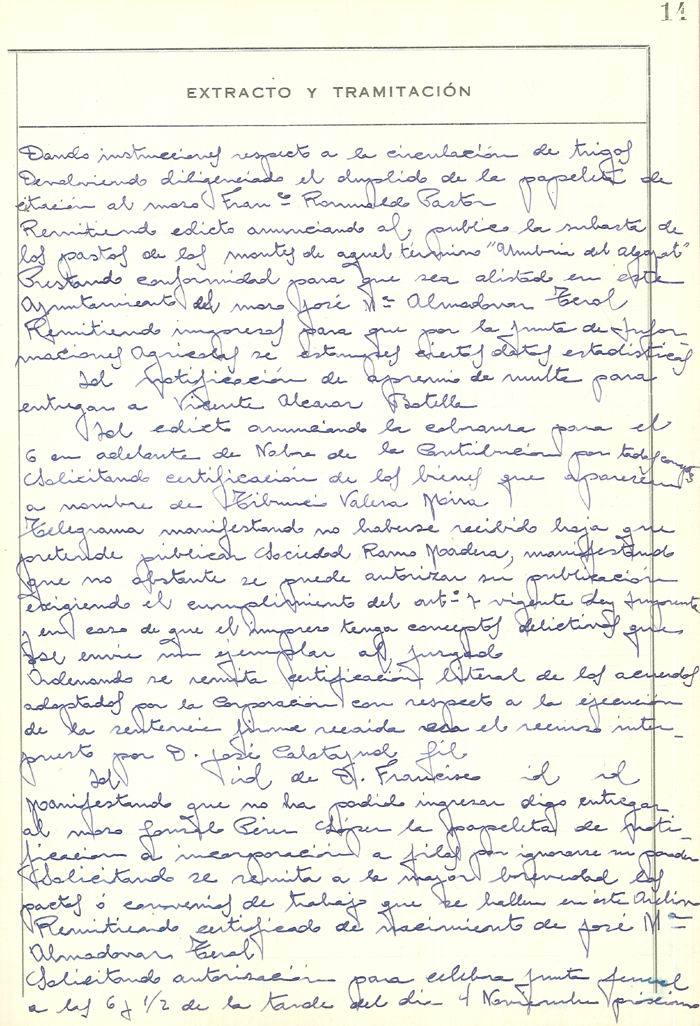 14
EXTRACTO Y TRAMITACIÓN
Dando instrucciones respecto a la circulación de trigos
Devolviendo diligenciado el duplido de la papeleta de
citación al mozo Fran.co Romualdo Pastor
Remitiendo edicto anunciando al publico la subasta de
los pastos de los montes de aquel término "Umbria del Algayat"
Prestando conformidad para que sea alistado en este
Ayuntamiento del mozo José Mª Almodovar Terol
Remitiendo impresos para que por la Junta de Infor-
maciones Agricolas se estampes ciertos datos estadisticos
Id notificación de apremio de multa para
entregar a Vicente Alcaraz Botella
Id edicto anunciando la cobranza para el
6 en adelante de Nobre de la Contribucion por todos conceptos
Solicitando certificación de los bienes que aparecen
a nombre de Tiburcio Valera Mira
Telegrama manifestando no haberse recibido hoja que
pretende publicar Sociedad Ramo Madera, manifestando
que no obstante se puede autorizar su publicación
exigiendo el cumplimiento del artº 7 vigente Ley Imprenta
y en caso de que el impreso tenga conceptos delictivos que
se envie un ejemplar al juzgado
Ordenando se remita certificación literal de los acuerdos
adoptados por la Corporación con respecto a la ejecución
de la sentencia firme recaida en el recurso inter-
puesto por D. José Calatayud Gil
Id id de D. Francisco id id
Manifestando que no ha podido ingresar digo entregar
al mozo Gonzalo Pérez López la papeleta de noti-
ficacion a incorporación a filas por ignorarse su parader
Solicitando se remita a la mayor brevedad los
pactos ó convenios de trabajo que se hallen en este Archivo
Remitiendo certificado de nacimiento de José Mª
Almodovar Terol
Solicitando autorización para celebra junta general
a las 6 y 1/2 de la tarde del dia 4 Noviembre próximo